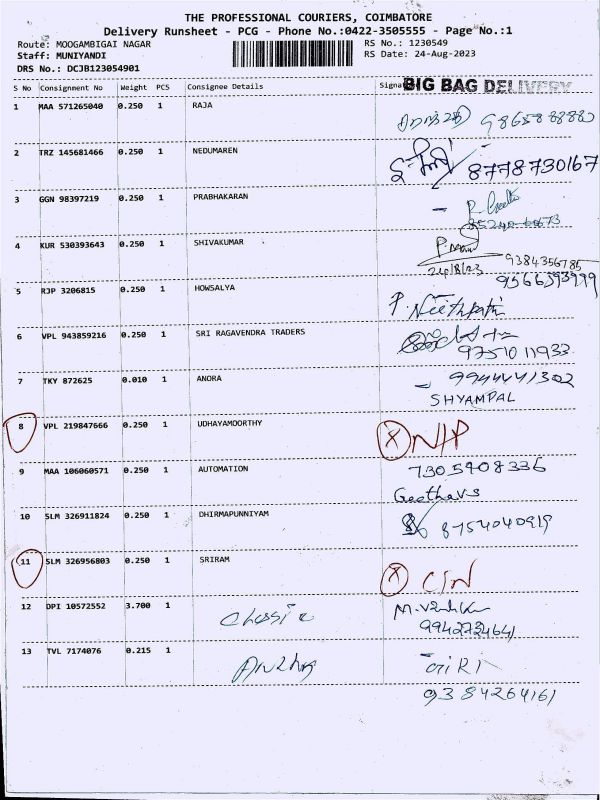 THE PROFESSIONAL COURIERS, COIMBATORE
Delivery Runsheet - PCG - Phone No.:0422-3505555 - Page No.:1
Route: MOOGAMBIGAI NAGAR RS No.: 1230549
Staff: MUNIYANDI RS Date: 24-Aug-2023
DRS No.: DCJB123054901
S No Consignment No Weight PCS Consignee Details BIG BAG DELIVERY
1 MAA 571265040 0.250 1 RAJA
2 TRZ 145681466 0.250 1 NEDUMAREN
8778730167
3 GGN 98397219 0.250 1 PRABHAKARAN
4 KUR 530393643 0.250 1 SHIVAKUMAR
24/8/23 9384356785
9566393999
5 RJP 3206815 0.250 1 HOWSALYA
6 VPL 943859216 0.250 1 SRI RAGAVENDRA TRADERS
9751011933
7 TKY 872625 0.010 1 ANORA
9944441302
SHYAMPAL
8 VPL 219847666 0.250 1 UDHAYAMOORTHY X N/P
9 MAA 106060571 0.250 1 AUTOMATION 7305908336
10 SLM 326911824 0.250 1 DHIRMAPUNNIYAM
8754040919
11 SLM 326956803 0.250 1 SRIRAM X C/N
12 DPI 10572552 3.700 1
9942734641
13 TVL 7174076 0.215 1 GIRI
9384264161